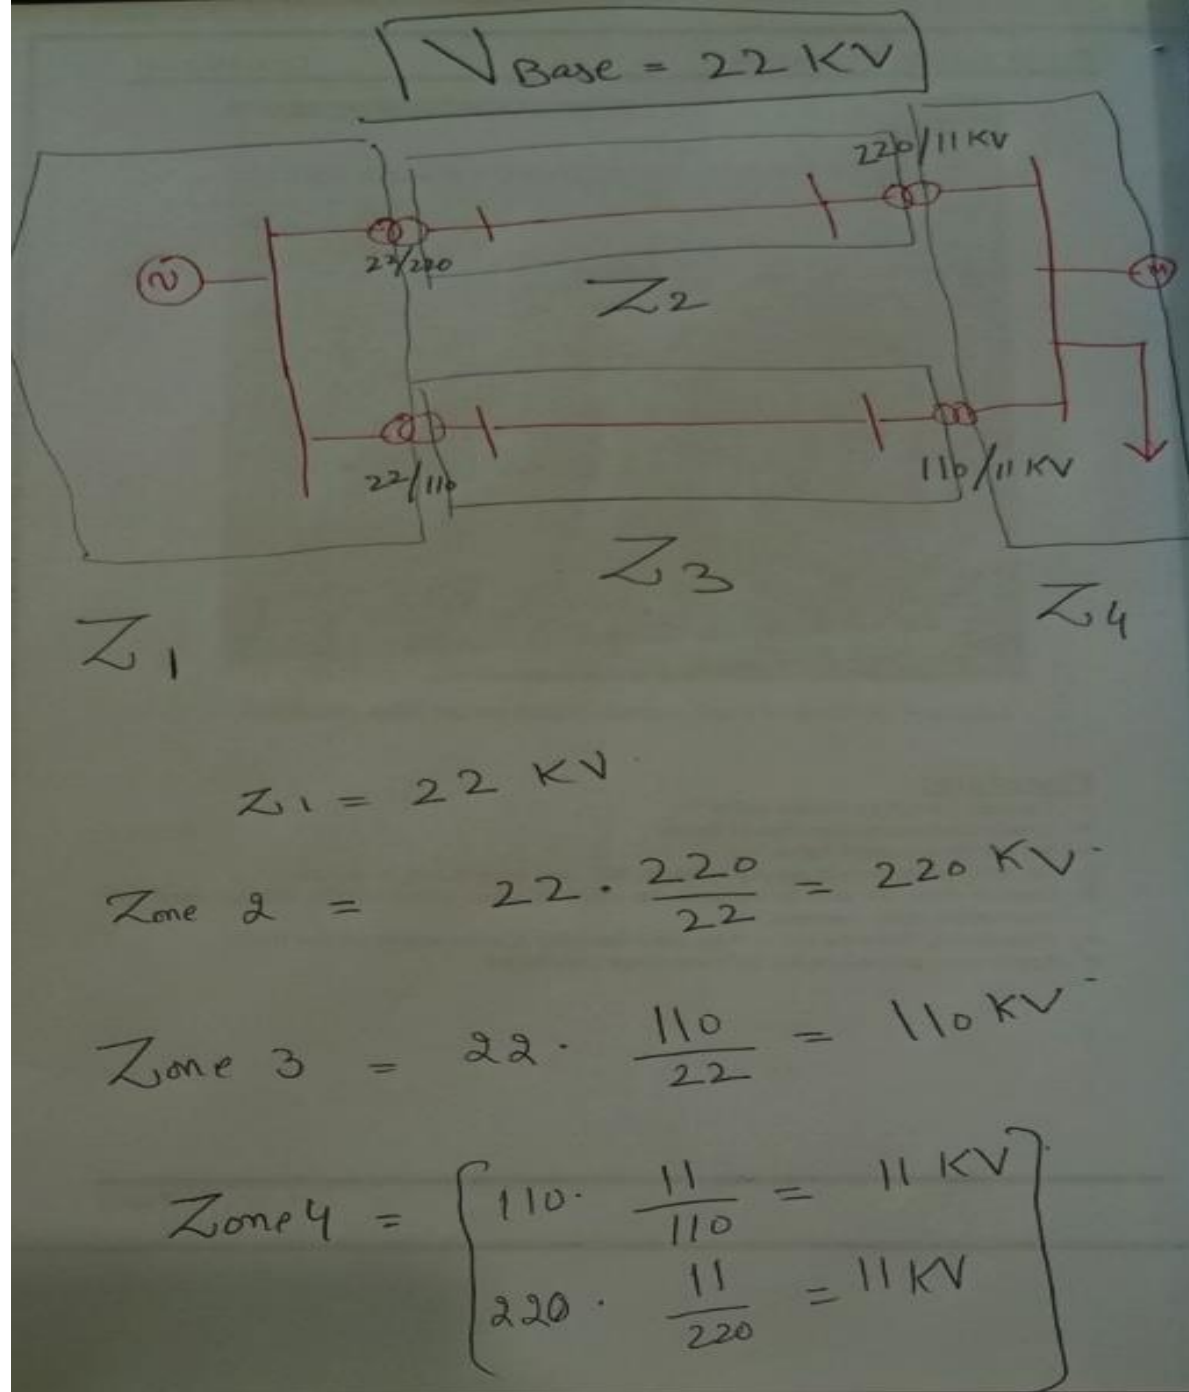 V Base = 22 KV
220/11 KV
22/220
Z2
22/110
110/11 KV
Z3
Z4
Z1
Z1 = 22 KV
Zone 2 = 22 . 220/22 = 220 KV
Zone 3 = 22 . 110/22 = 110 KV
Zone 4 = [ 110 . 11/110 = 11 KV ]
220 . 11/220 = 11 KV